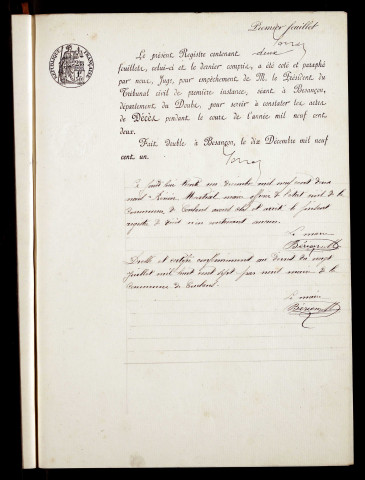 Premier feuillet
Le présent Registre contenant deux
feuillets, celui-ci et le dernier compris, a été coté et paraphé
par nous, Juge, pour empêchement de M. le Président du
Tribunal civil de première instance, séant à Besançon,
département du Doubs, pour servir à constater les actes
de Décès pendant le cours de l'année mil neuf cent
deux.
Fait double à Besançon, le dix Décembre mil neuf
cent un.
trente un décembre mil neuf cent deux
nous maire officier de l'état civil de la
Commune de avons clos et arrêté le présent
registre
Le maire
et conformément au décret du vingt
juillet mil huit cent sept par nous maire de la
Commune de
Le maire